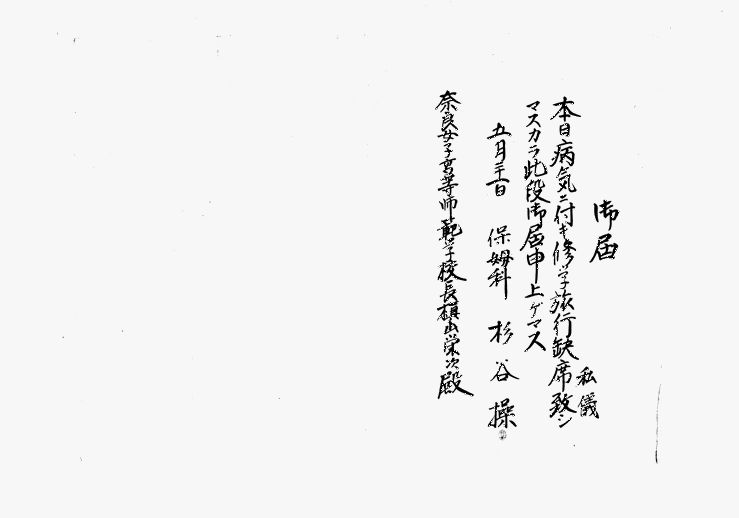 御届
私儀
本日病気ニ付キ修学旅行缺席致シ
マスカラ此段御届申上ゲマス
五月二十一日 保姆科 杉谷操
奈良女子高等師範学校長槇山栄次殿